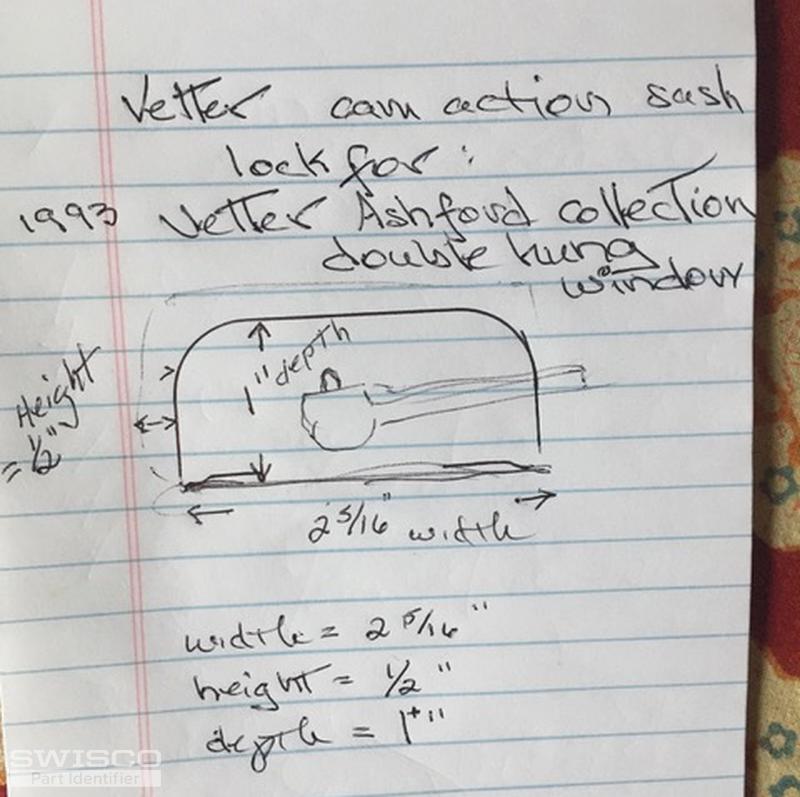 Vetter cam action sash
lock for:
1993 Vetter Ashford collection
double hung
window
Height
= 1/2"
1" depth
2 5/16" width
width = 2 5/16"
height = 1/2"
depth = 1+"
SWISCO
Part Identifier